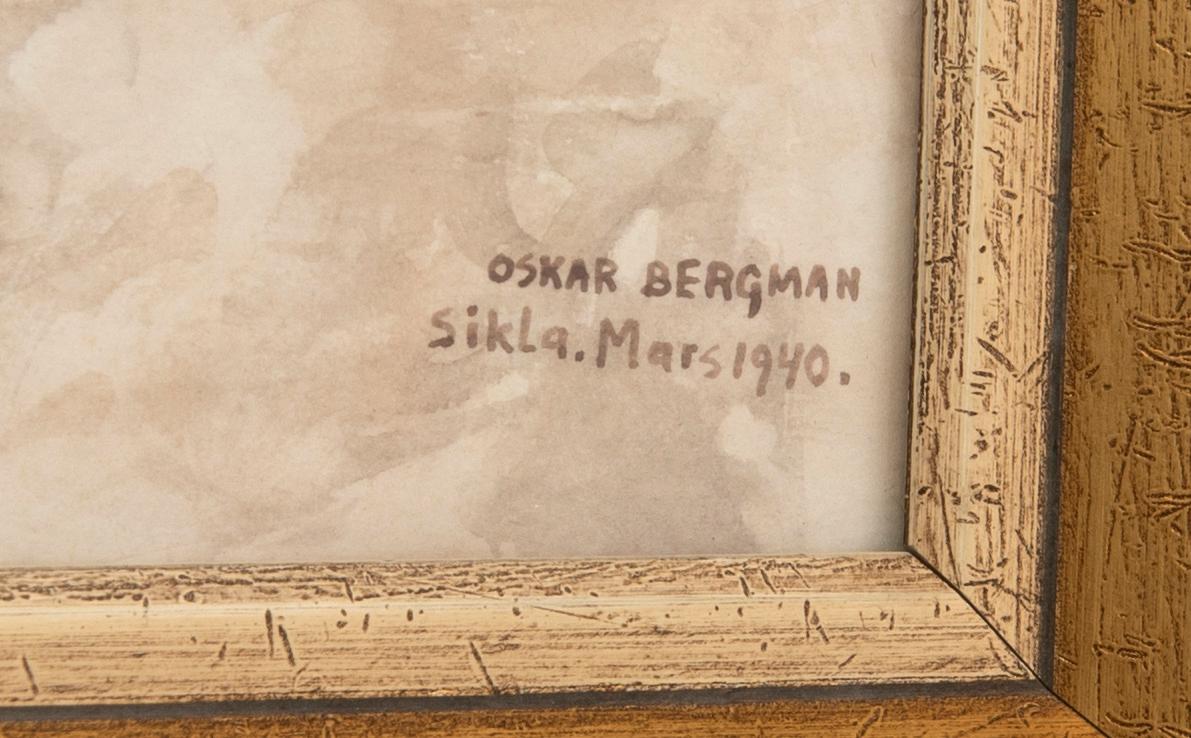 OSKAR BERGMAN
Sikla. Mars 1940.